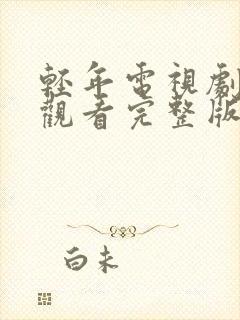 輕年電視劇
觀看完整版
白未